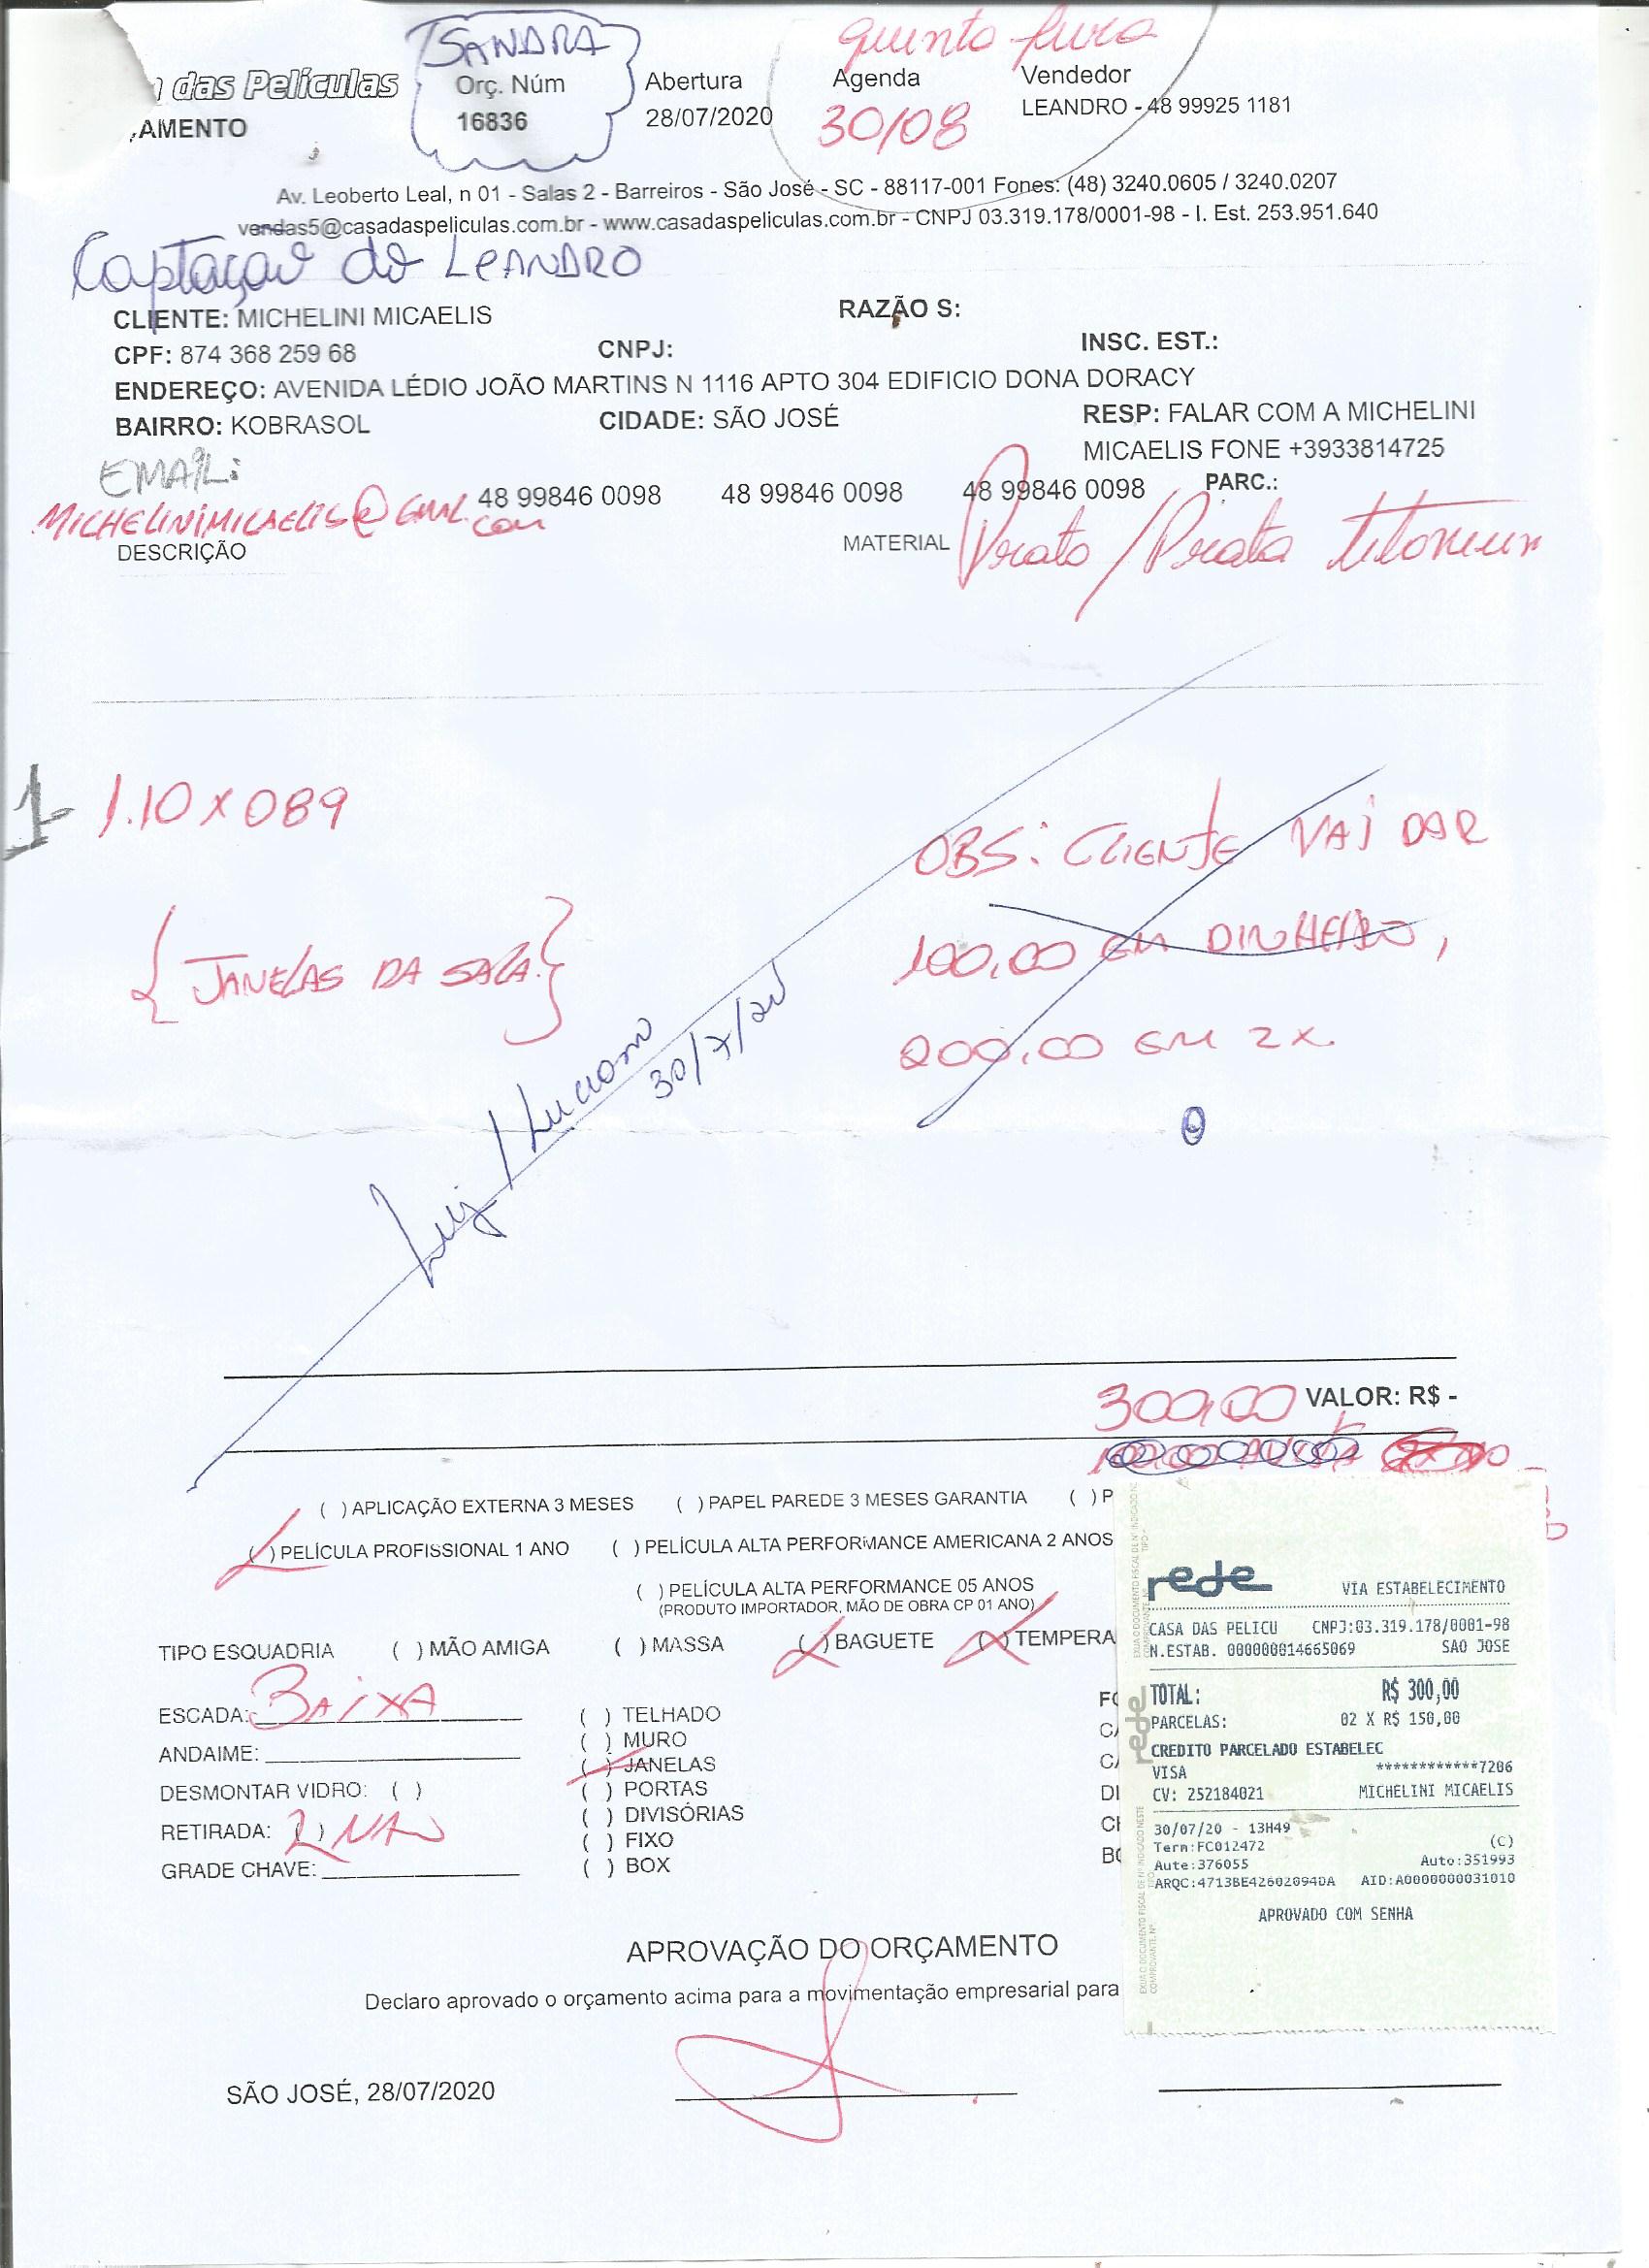 SANDRA
quinta feira
das Películas
Orç. Núm
Abertura
Agenda
Vendedor
AMENTO
16836
28/07/2020
30/08
LEANDRO - 48 99925 1181
Av. Leoberto Leal, n 01 - Salas 2 - Barreiros - São José - SC - 88117-001 Fones: (48) 3240.0605 / 3240.0207
vendas5@casadaspeliculas.com.br - www.casadaspeliculas.com.br - CNPJ 03.319.178/0001-98 - I. Est. 253.951.640
Captação do LEANDRO
CLIENTE: MICHELINI MICAELIS RAZÃO S:
CPF: 874 368 259 68 CNPJ: INSC. EST.:
ENDEREÇO: AVENIDA LÉDIO JOÃO MARTINS N 1116 APTO 304 EDIFICIO DONA DORACY
BAIRRO: KOBRASOL CIDADE: SÃO JOSÉ RESP: FALAR COM A MICHELINI
MICAELIS FONE +3933814725
EMAIL:
48 99846 0098 48 99846 0098 48 99846 0098 PARC.:
MICHELINIMICAELIS@GMAIL.com
DESCRIÇÃO MATERIAL Prata / Prata titanium
1- 1.10 x 089
OBS: CLIENTE VAI DAR
100,00 EM DINHEIRO,
200,00 EM 2X.
{JANELAS DA SALA}
Luiz / Luciano
30/7/20
300,00 VALOR: R$ -
( ) APLICAÇÃO EXTERNA 3 MESES ( ) PAPEL PAREDE 3 MESES GARANTIA ( ) P
( ) PELÍCULA PROFISSIONAL 1 ANO ( ) PELÍCULA ALTA PERFORMANCE AMERICANA 2 ANOS
( ) PELÍCULA ALTA PERFORMANCE 05 ANOS
(PRODUTO IMPORTADOR, MÃO DE OBRA CP 01 ANO)
TIPO ESQUADRIA ( ) MÃO AMIGA ( ) MASSA ( ) BAGUETE ( ) TEMPERA
ESCADA: BAIXA
ANDAIME:
DESMONTAR VIDRO: ( )
RETIRADA: ( ) NÃO
GRADE CHAVE:
( ) TELHADO
( ) MURO
( ) JANELAS
( ) PORTAS
( ) DIVISÓRIAS
( ) FIXO
( ) BOX
rede
VIA ESTABELECIMENTO
CASA DAS PELICU CNPJ:03.319.178/0001-98
N.ESTAB. 000000014665069 SAO JOSE
TOTAL: R$ 300,00
PARCELAS: 02 X R$ 150,00
CREDITO PARCELADO ESTABELEC
VISA ************7206
CV: 252184021 MICHELINI MICAELIS
30/07/20 - 13H49
Term:FC012472 (C)
Aute:376055 Auto:351993
ARQC:4713BE42602094DA AID:A0000000031010
APROVADO COM SENHA
APROVAÇÃO DO ORÇAMENTO
Declaro aprovado o orçamento acima para a movimentação empresarial para
SÃO JOSÉ, 28/07/2020